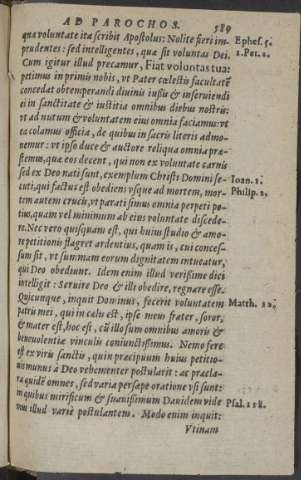 AD PAROCHOS. 589
qua voluntate ita scribit Apostolus: Nolite fieri im- Ephes. 5.
prudentes: sed intelligentes, quæ sit voluntas Dei. 1. Pet. 2.
Cum igitur illud precamur, Fiat voluntas tua:
petimus in primis nobis, vt Pater cœlestis facultatē
concedat obtemperandi diuinis iussis & inseruiendi
ei in sanctitate & iustitia omnibus diebus nostris:
vt ad nutum & voluntatem eius omnia faciamus: vt
ea colamus officia, de quibus in sacris literis admo-
nemur: vt ipso duce & auctore reliqua omnia præ-
stemus, quæ eos decent, qui non ex voluntate carnis
sed ex Deo nati sunt, exemplum Christi Domini se- Ioan. 1.
cuti, qui factus est obediens vsque ad mortem, mor- Philip. 2.
tem autem crucis, vt parati simus omnia perpeti po-
tius, quàm vel minimum ab eius voluntate discede-
re. Nec verò quisquam est, qui huius studio & amo-
re petitionis flagret ardentius, quam is, cui conces-
sum sit, vt summam eorum dignitatem intueatur,
qui Deo obediunt. Idem enim illud verißime dici
intelligit: Seruire Deo & illi obedire, regnare esse.
Quicumque, inquit Dominus, fecerit voluntatem Matth. 12.
patris mei, qui in cælis est, ipse meus frater, soror,
& mater est, hoc est, cū illo sum omnibus amoris &
beneuolentiæ vinculis coniunctißimus. Nemo fere
est ex viris sanctis, quin præcipuum huius petitio-
nis munus à Deo vehementer postularit: ac præcla-
ra quidē omnes, sed varia persæpe oratione vsi sunt:
in quibus mirificum & suauißimum Dauidem vide Psal. 118.
mus illud variè postulantem. Modo enim inquit:
Vtinam